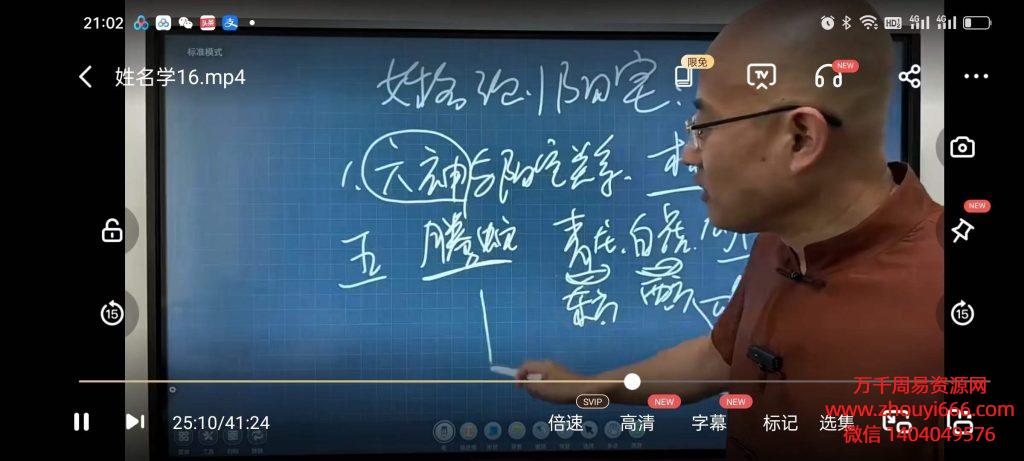 21:02
标准模式
姓名学16.mp4
限免
TV
NEW
姓名
阳宅.
1、六神与阳宅关系.
五 螣蛇 青龙.白虎.
东方 西方
NEW
15
15
25:10/41:24
倍速
SVIP
高清
NEW
字幕
NEW
标记
选集
万千周易资源网
www.zhouyi666.com
微信 1404049576